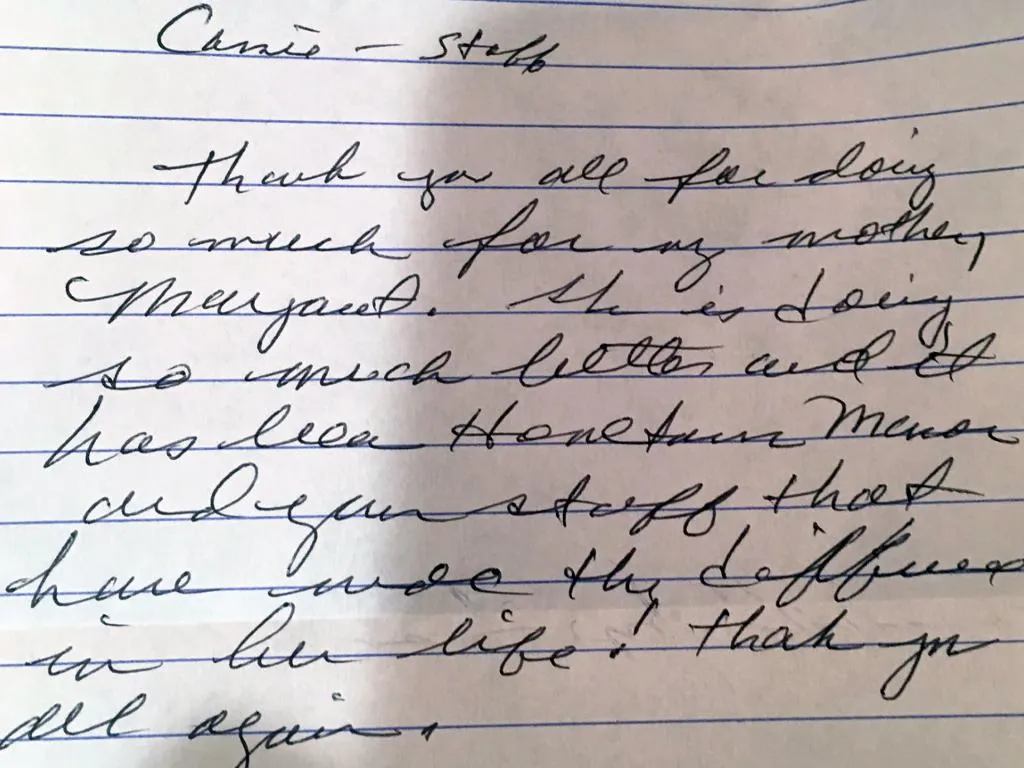 Carrie - Staff
Thank you all for doing
so much for my mother,
Margaret. She is doing
so much better and it
has been Hometown Manor
and your staff that
have made the difference
in her life! Thank you
all again.